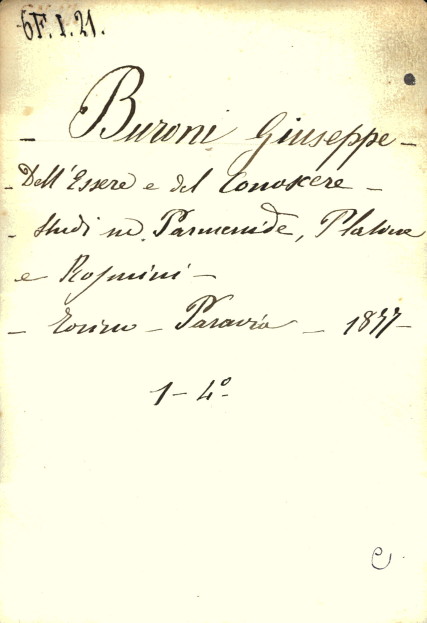 6F.1.21.
- Buroni Giuseppe -
- Dell'Essere e del Conoscere -
- Studi su Parmenide, Platone
e Rosmini -
- Torino - Paravia - 1877 -
1 - 4º -
C